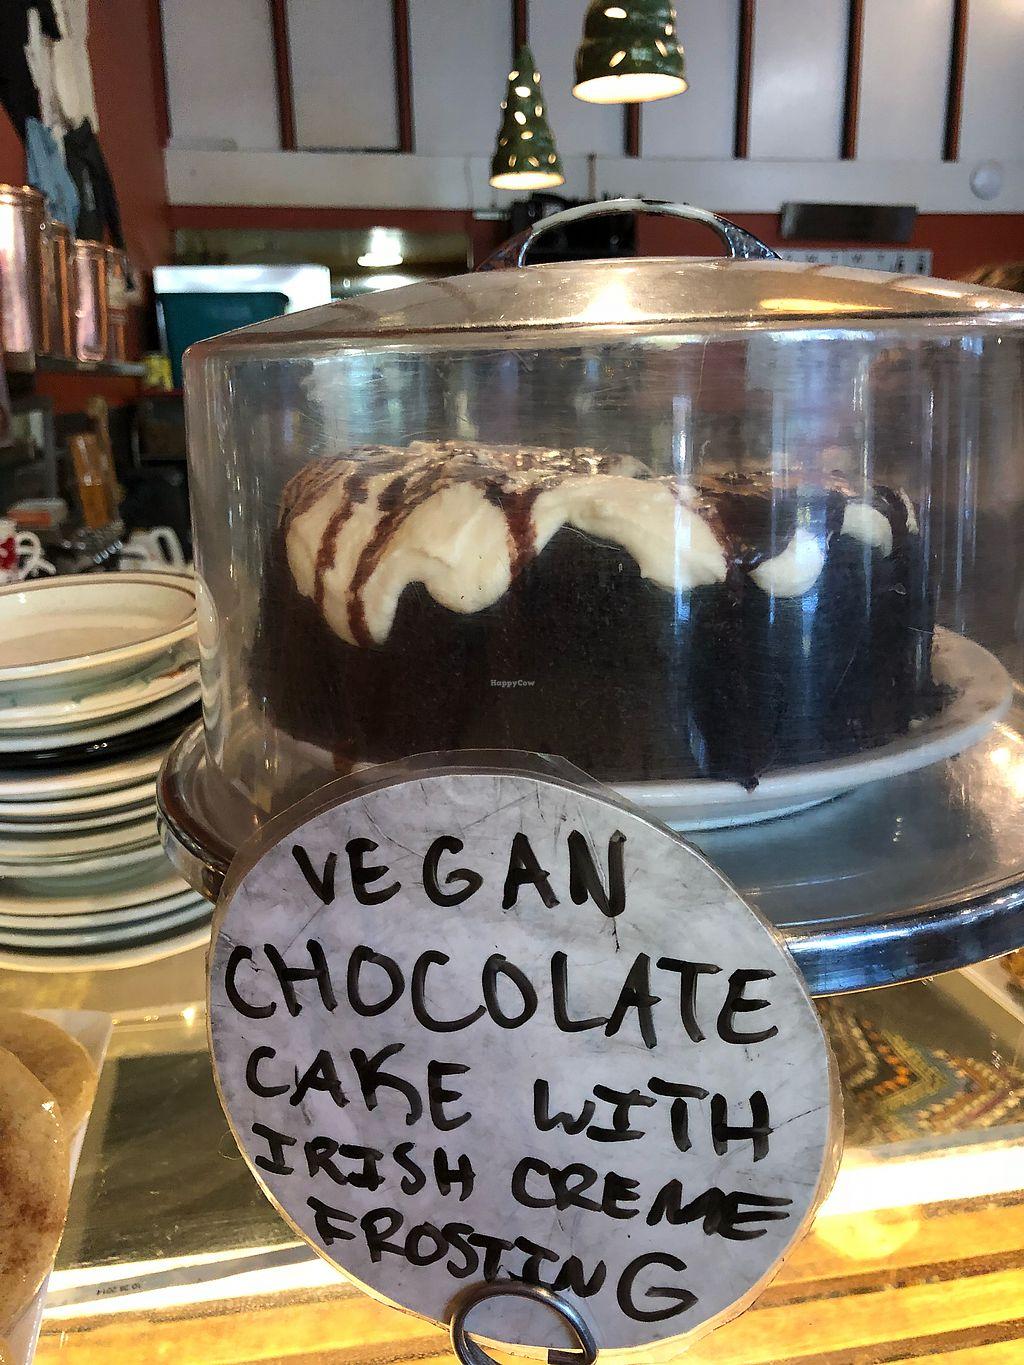 HappyCow
VEGAN
CHOCOLATE
CAKE WITH
IRISH CREME
FROSTING